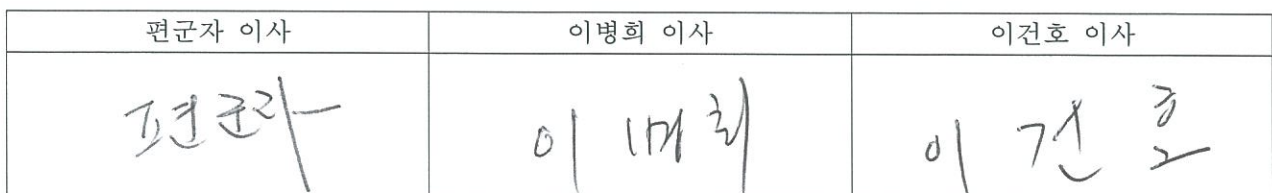 편군자 이사 이병희 이사 이건호 이사
편군자 이병희 이건호